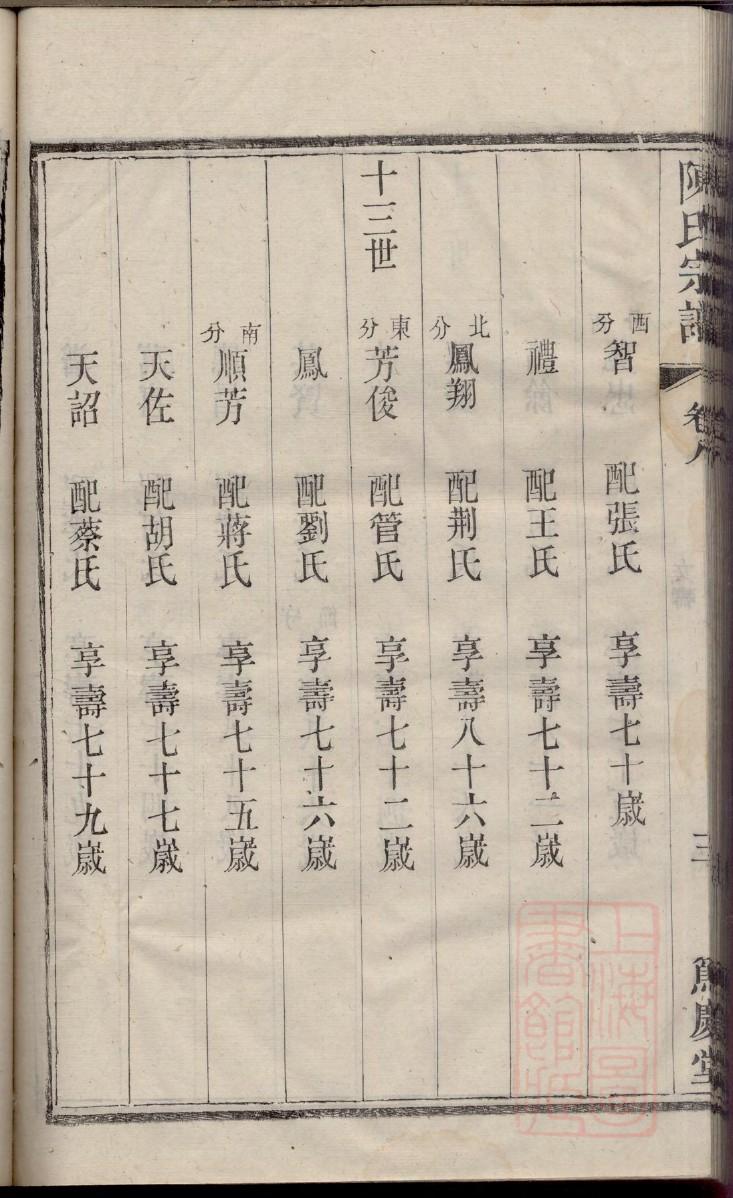 陳氏宗譜 卷八 三 篤慶堂
西分 智 配張氏 享壽七十歲
禮 配王氏 享壽七十二歲
北分 鳳翔 配荆氏 享壽八十六歲
十三世 東分 芳俊 配管氏 享壽七十二歲
鳳 配劉氏 享壽七十六歲
南分 順芳 配蔣氏 享壽七十五歲
天佐 配胡氏 享壽七十七歲
天詔 配蔡氏 享壽七十九歲
上海圖書館藏